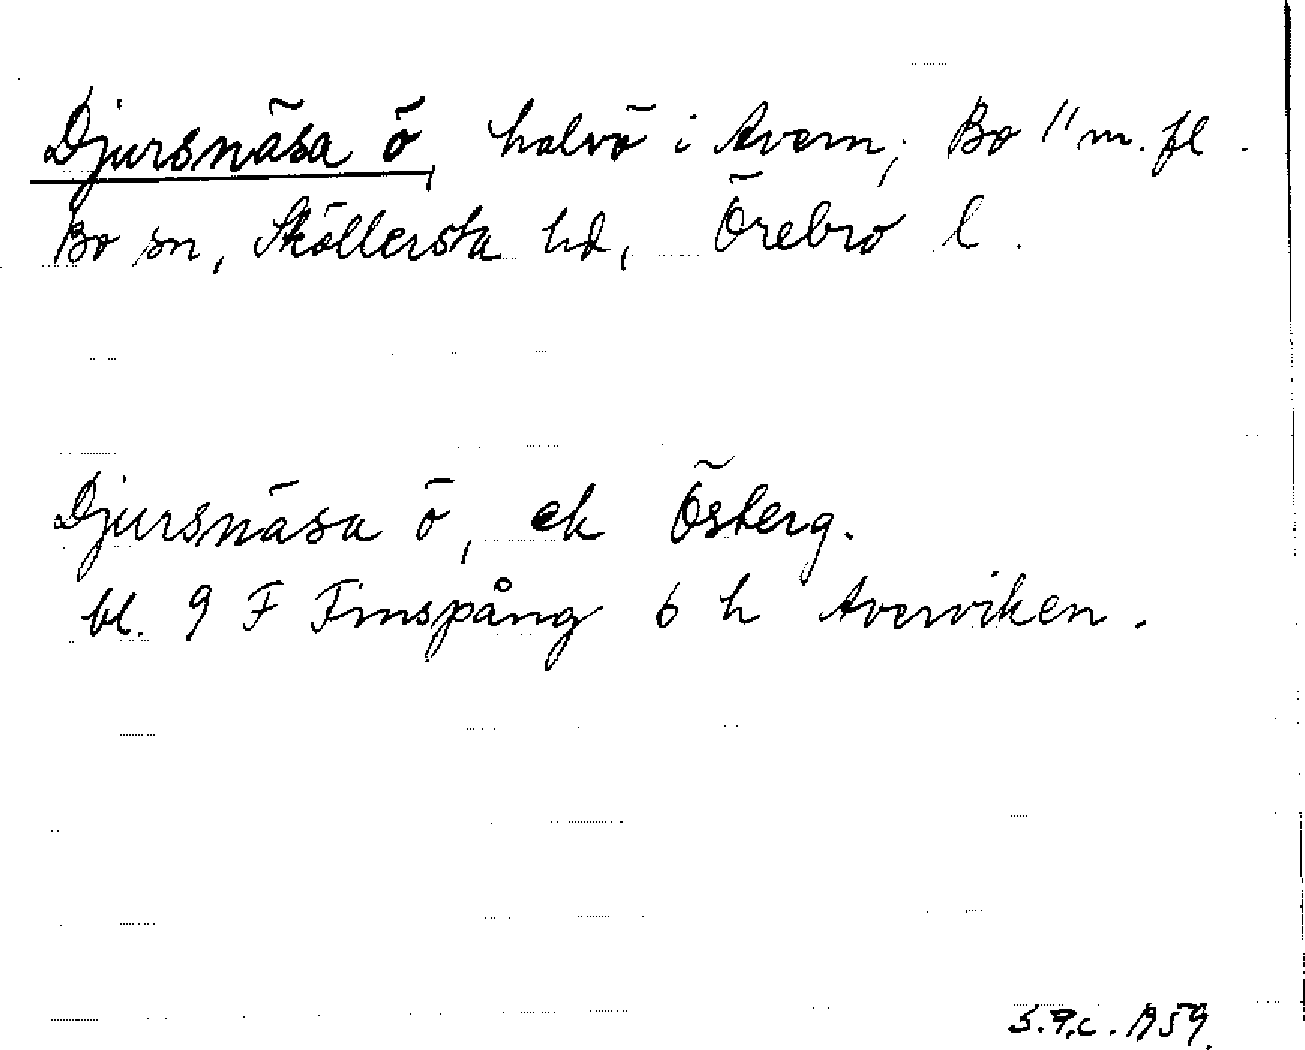 Djursnäsa ö, halvö i Avern; Bo 1¹ m. fl.
Bo sn, Sköllersta hd, Örebro l.
Djursnäsa ö, ek Österg.
bl. 9 F Finspång 6 h Averviken.
1959.